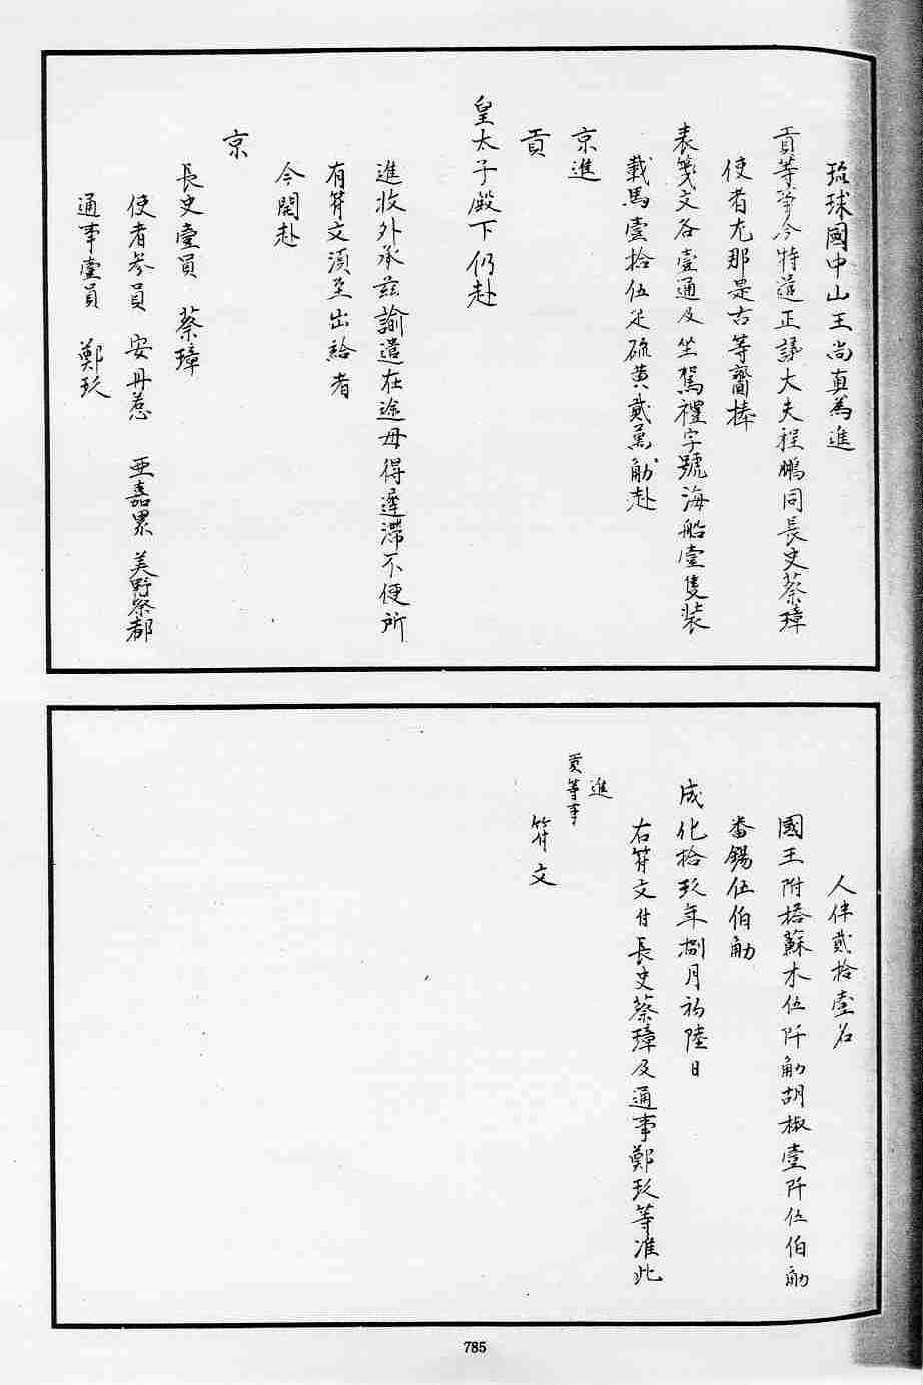 琉球國中山王尚真為進
貢等事今特遣正議大夫程鵬同長史蔡璋
使者尤那是古等齎捧
表箋文各壹通及坐駕禮字號海船壹隻裝
載馬壹拾伍疋硫黃貳萬觔赴
京進
貢
皇太子殿下仍赴
進收外承茲諭遣在途毋得遲滯不便所
有符文湏至出給者
今開赴
京
長史壹員 蔡璋
使者參員 安丹惹 亜嘉累 美野察都
通事壹員 鄭玖
人伴貳拾壹名
國王附搭蘇木伍阡觔胡椒壹阡伍伯觔
番錫伍伯觔
成化拾玖年捌月初陸日
右符文付長史蔡璋及通事鄭玖等准此
進
貢等事
符文
785